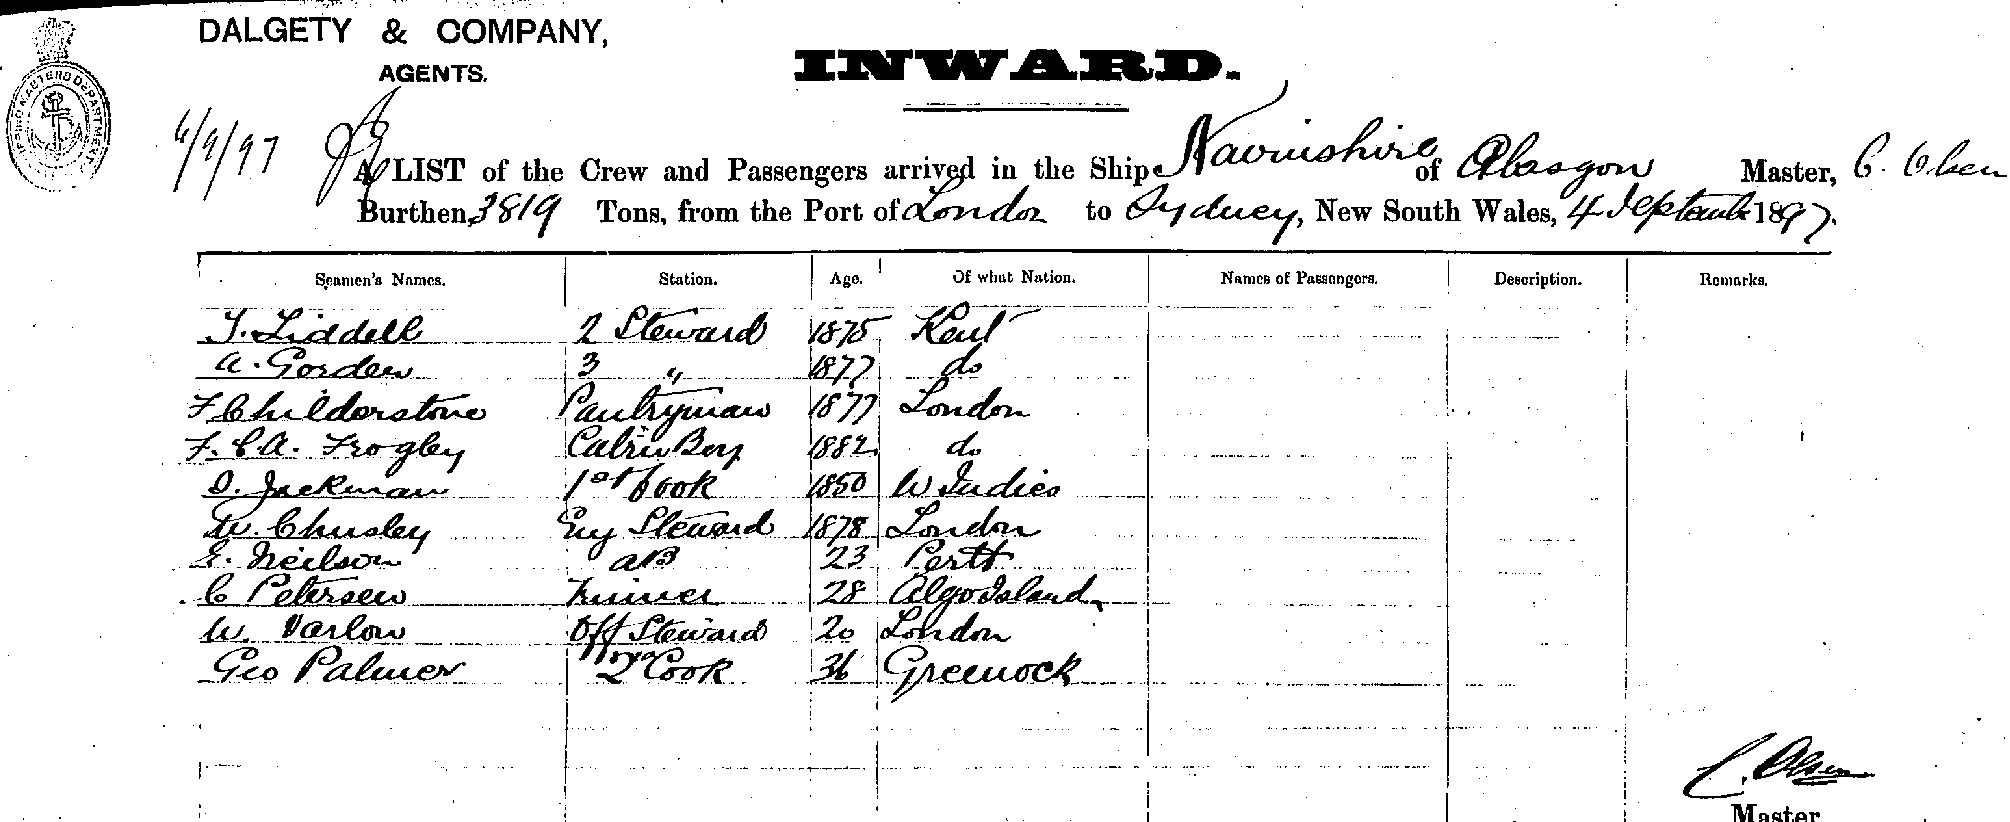 DALGETY & COMPANY,
AGENTS.
INWARD.
6/9/97
A LIST of the Crew and Passengers arrived in the Ship Nairnshire of Glasgow Master, C. Olsen
Burthen, 3819 Tons, from the Port of London to Sydney, New South Wales, 4 September 1897.
Seamen's Names. Station. Age. Of what Nation. Names of Passengers. Description. Remarks.
T. Liddell 2 Steward 1875 Kent
A. Gorden 3 " 1877 do
F Childerstone Pantryman 1877 London
F. C. A. Frogley Cabin Boy 1882 do
D. Jackman 1st Cook 1850 W Indies
W. Chusley Eng Steward 1878 London
E. Neilson AB 23 Perth
C Petersen Trimer 28 Algo Island
W. Varlow Off Steward 20 London
Geo Palmer 2 Cook 36 Greenock
C. Olsen
Master